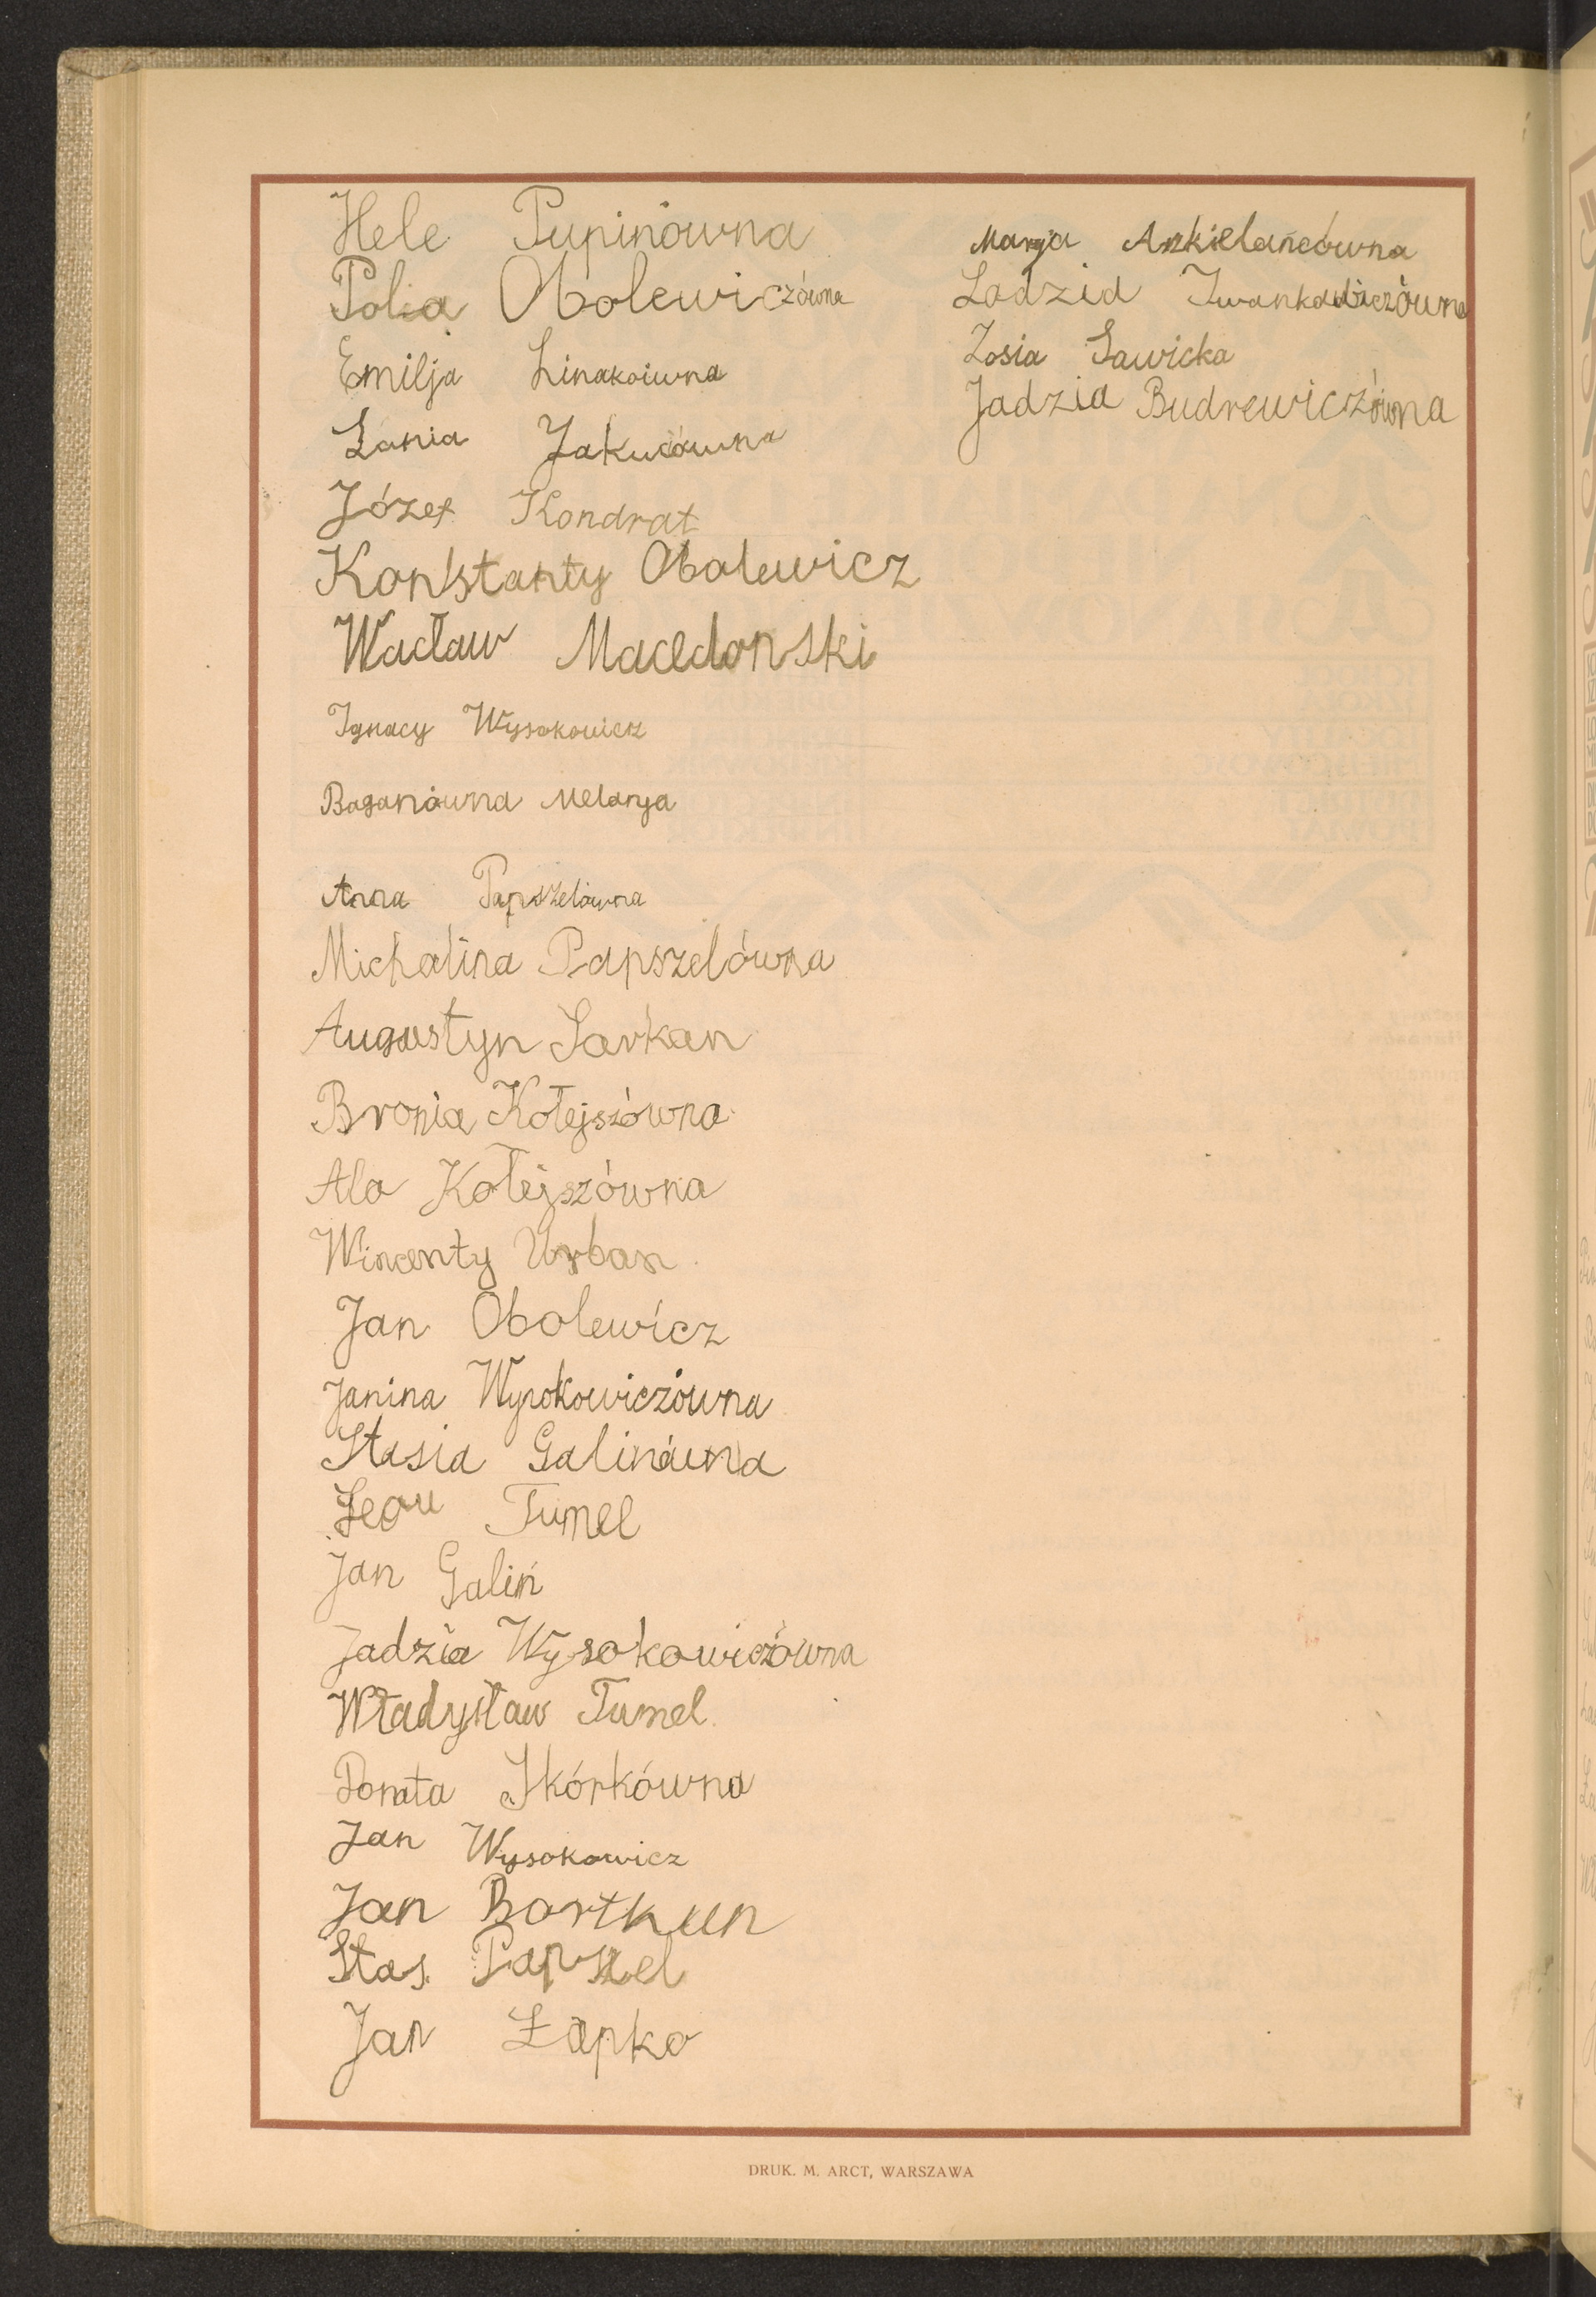 Hele Pupinówna
Pola Obolewiczówna
Emilja Linakoiwna
Lania Jakucówna
Józef Kondrat
Konstanty Obolewicz
Wacław Macedonski
Ignacy Wysokowicz
Baganówna Melanja
Anna Papszelówna
Michalina Papszelówna
Augustyn Sarkan
Bronia Kołejszówna
Ala Kołejszówna
Wincenty Urban
Jan Obolewicz
Janina Wysokowiczówna
Stasia Galinówna
Leon Tumel
Jan Galiń
Jadzia Wysokowiczówna
Władysław Tumel
Donata Skórkówna
Jan Wysokowicz
Jan Bortkun
Stas Papszel
Jan Łapko
Marja Ankielańcówna
Ladzia Iwankowiczówna
Zosia Sawicka
Jadzia Budrewiczówna
DRUK. M. ARCT, WARSZAWA